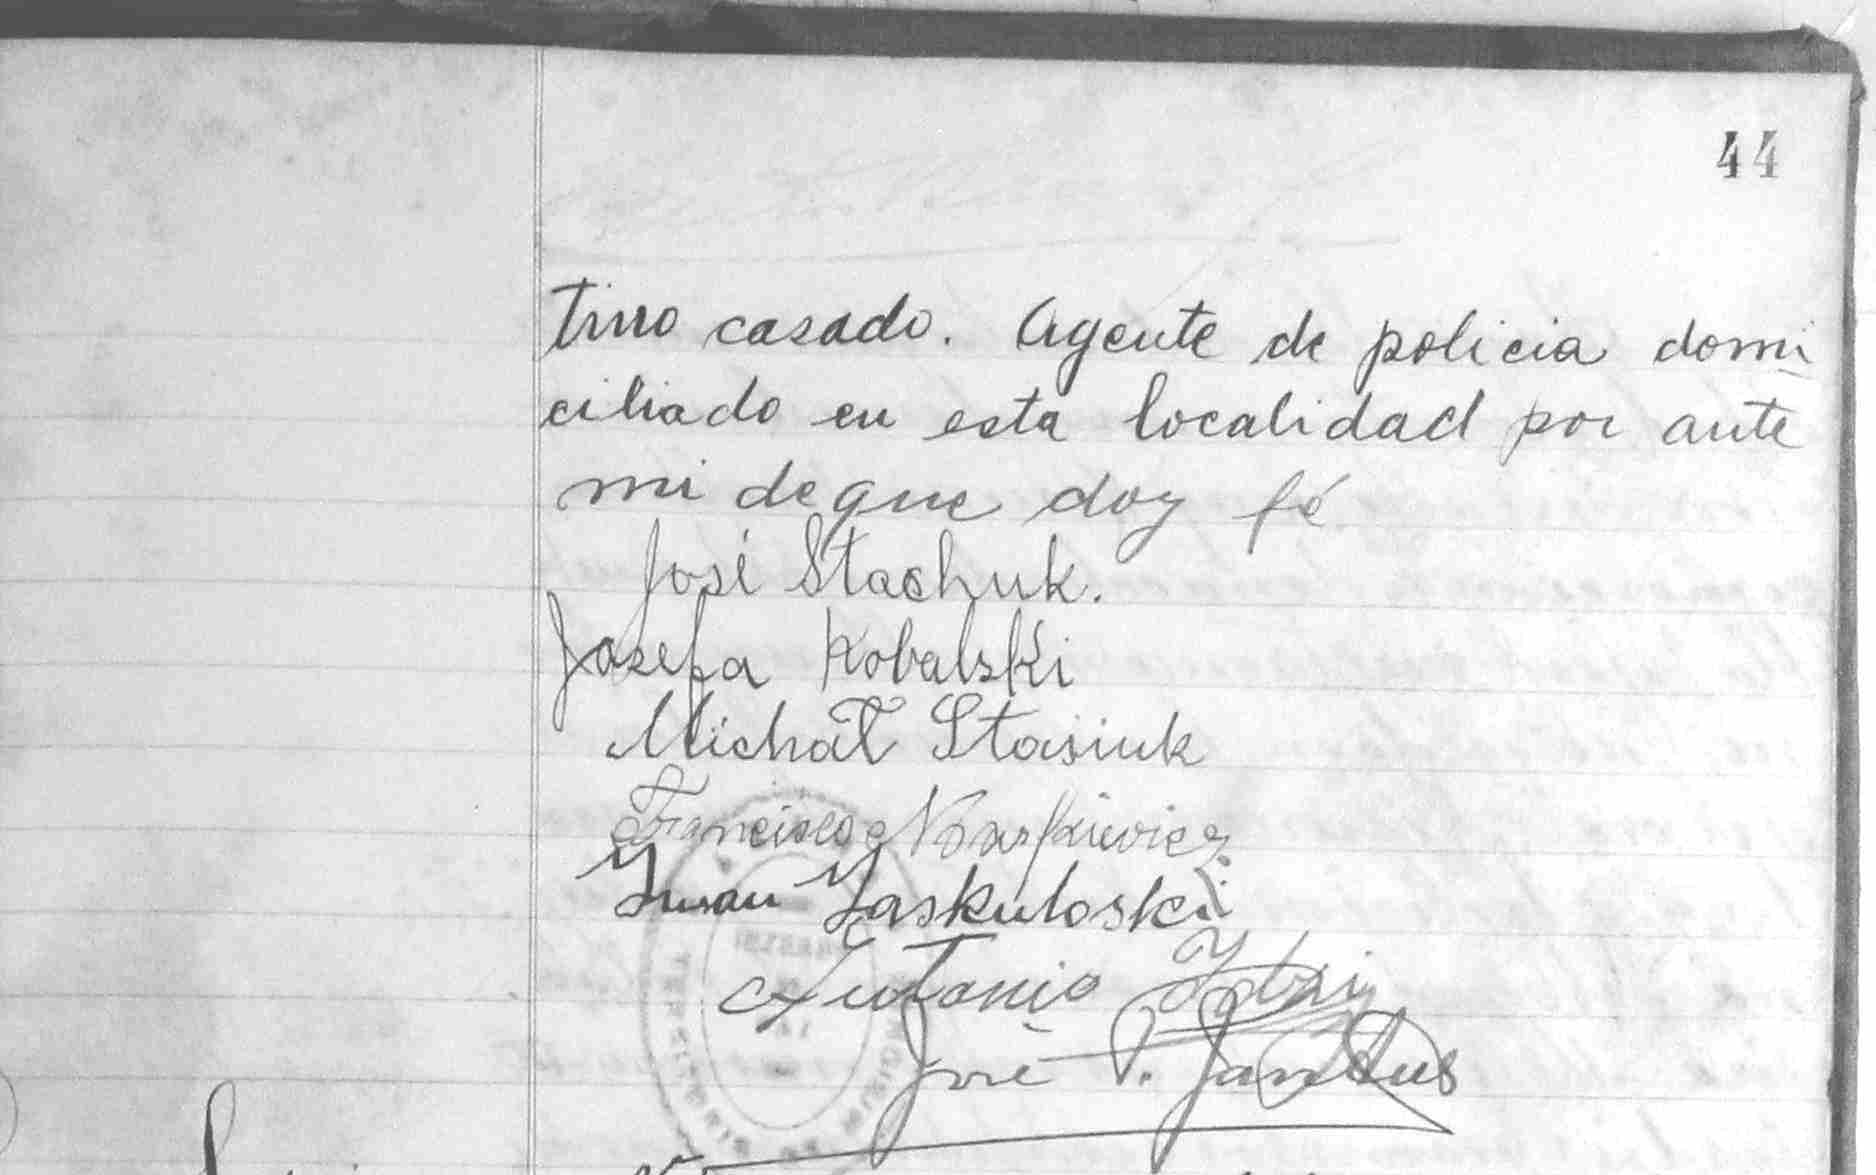 44
tino casado. Agente de policia domi
ciliado en esta localidad por ante
mi de que doy fé
José Stachuk.
Josefa Kobalski
Michał Stasiuk
Francisco
Juan Jaskuloski
Antonio
José P. Jandus